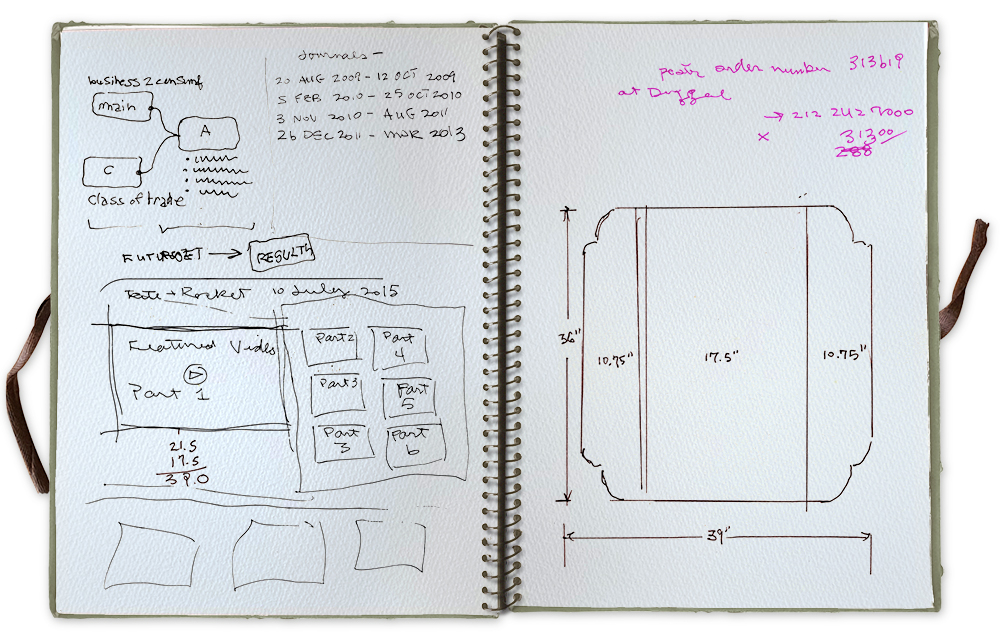 Journals —
20 AUG 2009 - 12 OCT 2009
5 FEB 2010 - 25 OCT 2010
3 NOV 2010 - AUG 2011
26 DEC 2011 - MAR 2013
business 2
main
A
C
class of trade
RESULTS
Tate + Rocket 10 July 2015
Featured Video
Part 1
Part 2
Part 4
Part 3
Part 5
Part 3
Part 6
21.5
17.5
39.0
order number 313619
at Duggal
→ 212 242 7000
x 313 00
288
36"
10.75"
17.5"
10.75"
39"